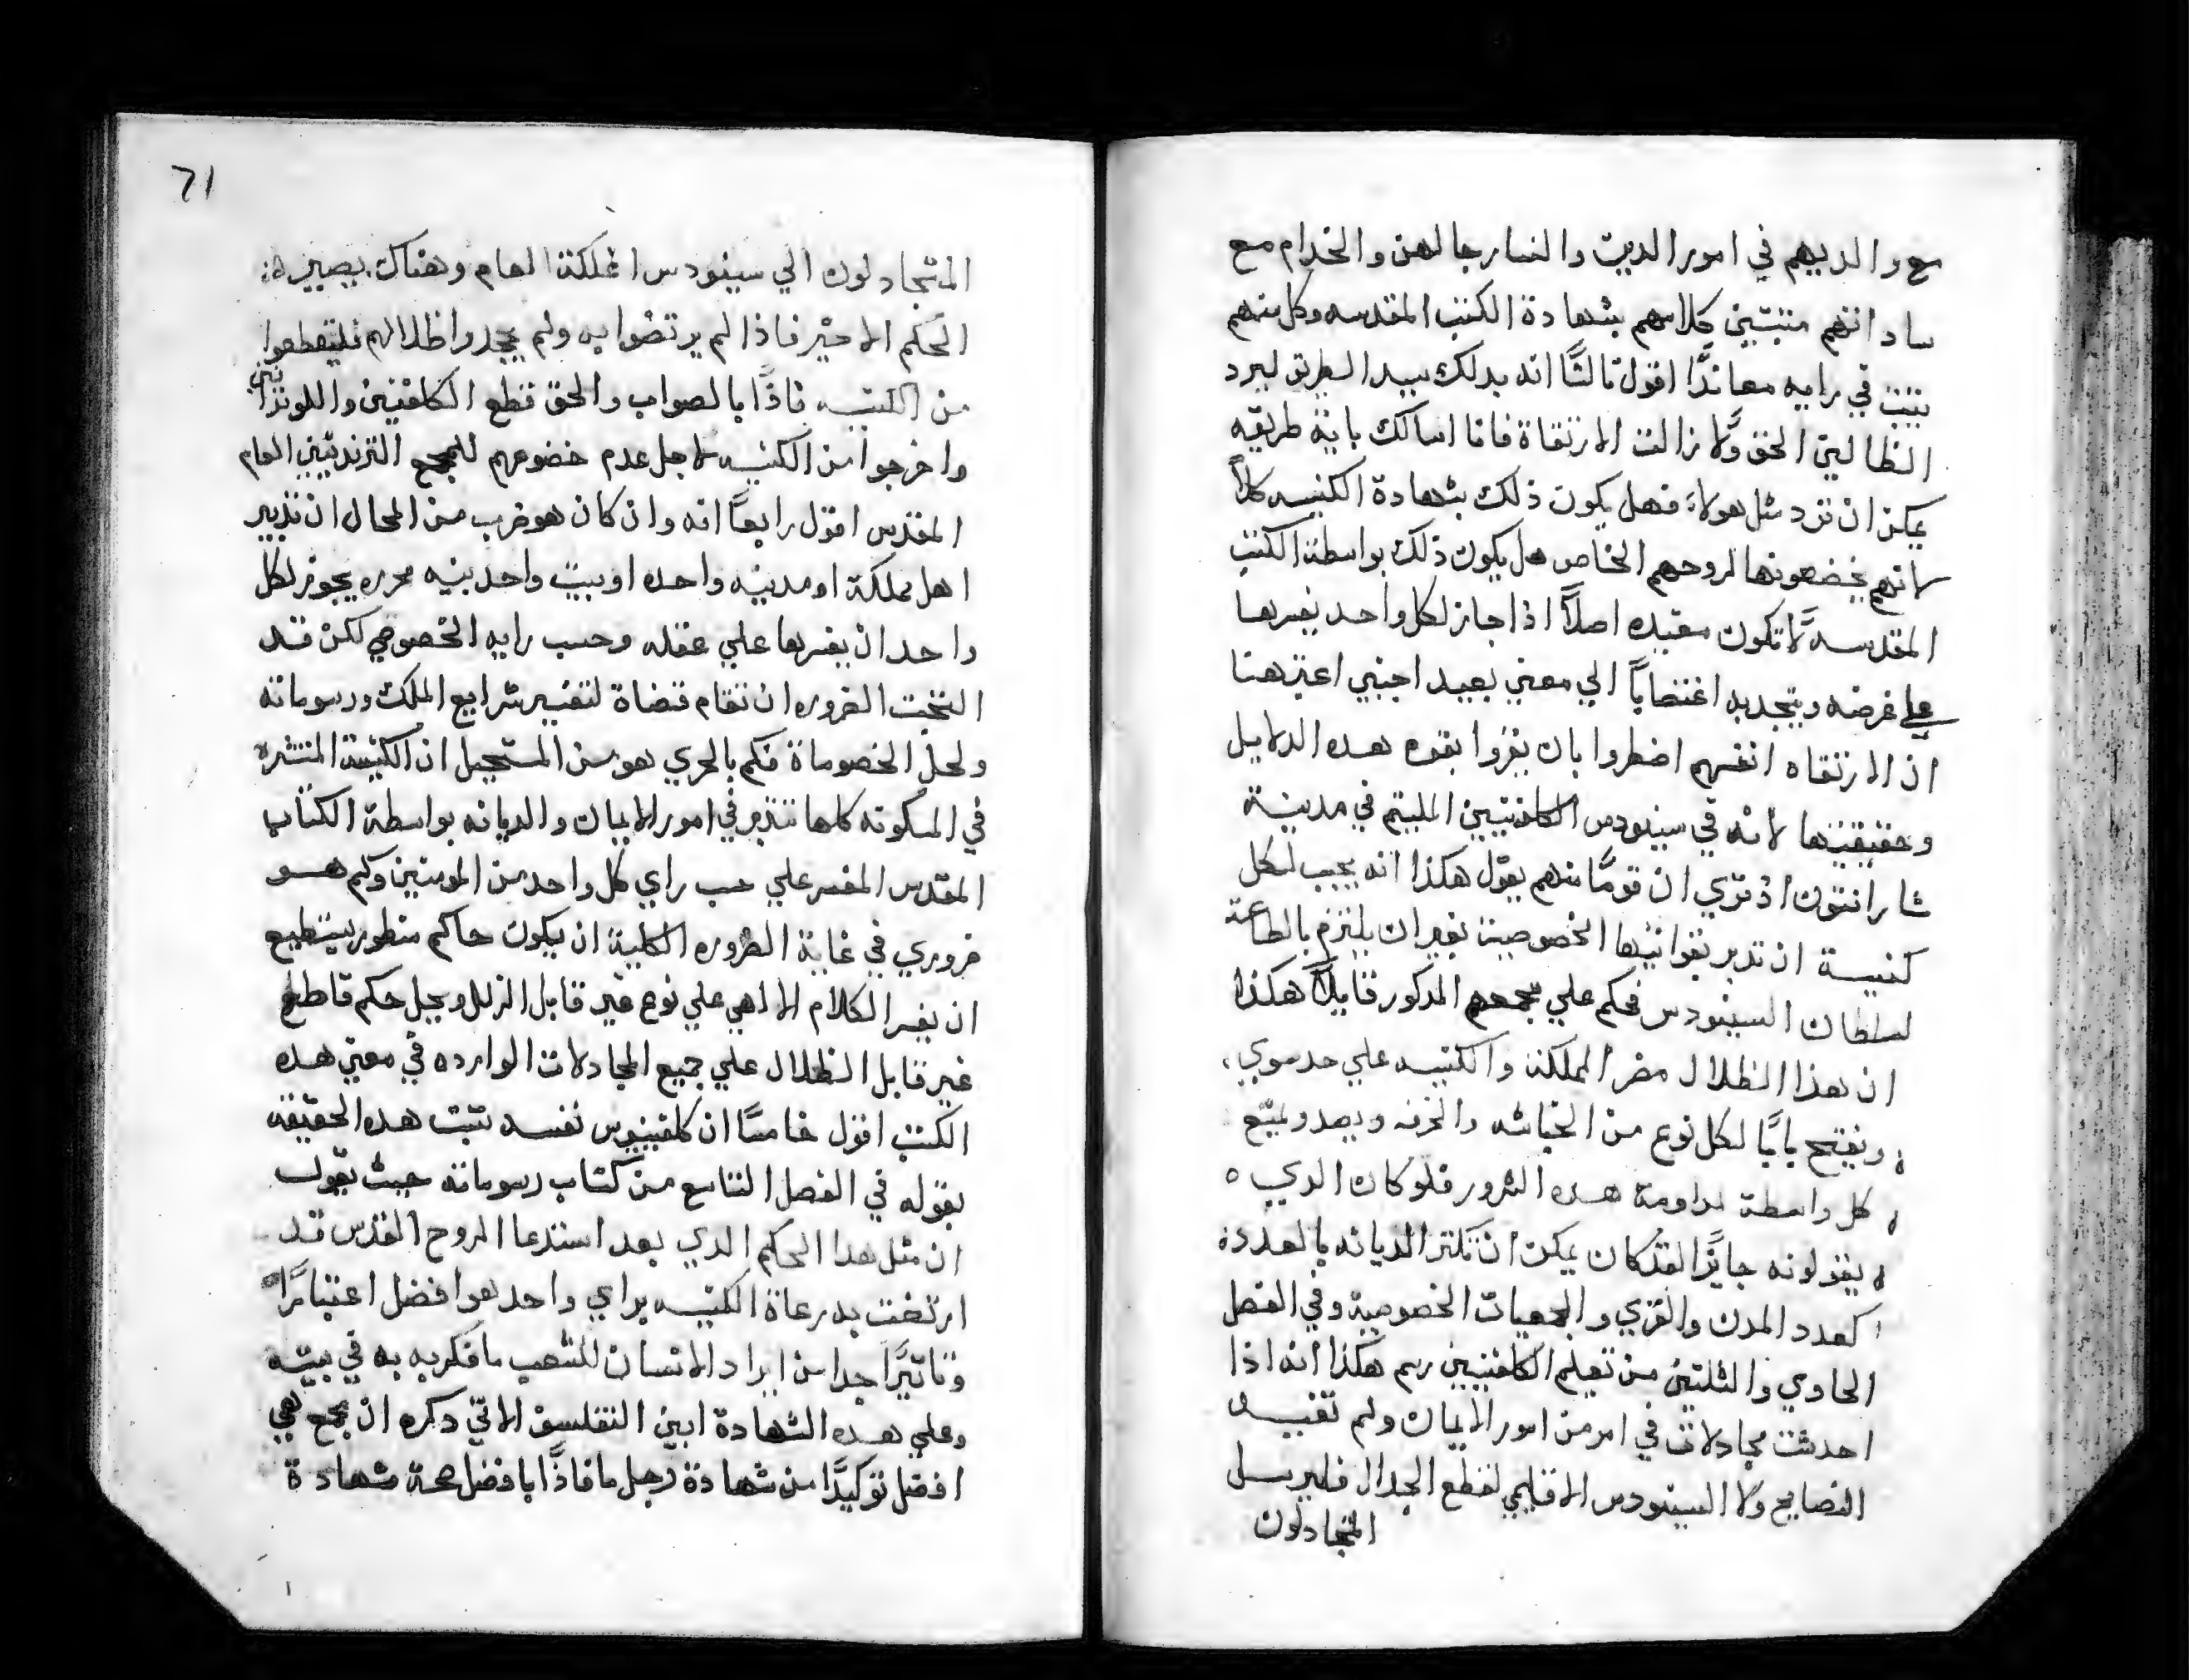 مع والديهم في امور الدين والنسا رجالهن والخدام مع
ساداتهم مثبتين كلامهم بشهادة الكتب المقدسه وكل منهم
يثبت في رايه معاندًا اقول ثالثًا انه بدلك يسد الطريق لرد
الظالين الحق ولازالت الارتقاة فانا اسالك باية طريقه
يمكن ان ترد مثل هولاء فهل يكون ذلك بشهادة الكنيسه كلاً
لانهم يخضعونها لروحهم الخاص هل يكون ذلك بواسطة الكتب
المقدسه لاتكون مفيده اصلاً اذا جاز لكل واحد يفسرها
علي غرضه ويتجدبه اغتصابًا الي معني بعيد اجنبي اعني هنا
ان الارتقاه انفسهم اضطروا بان يقروا بقوه هده الدلايل
وحقيقتها لانه في سينودس الكلفنيين الملتيم في مدينة
شارانتون اذ تري ان قومًا منهم يقول هكذا انه يجب لكل
كنيسة ان تدبر بقوانينها الخصوصية بغير ان يلتزم بالطاعة
لسلطان السينودس فحكم علي مجمعهم المدكور قايلاً هكذا
ان هذا الظلال مضر المملكة والكنيسه علي حد سوي
ويفتح بابًا لكل نوع من الخباثه والخرفه ويصد ويمنع
كل واسطة لمداومة هده الشرور فلو كان الدي ه
يقولونه جايزًا لقد كان يمكن ان تكتر الديانه بالعددة
كعدد المدن والقري والجمعيات الخصوصية وفي الفصل
الحادي والثلثين من تعليم الكلفنيين رسم هكذا انه اذا
احدثت مجادلات في امر من امور الايمان ولم تفيد
النصايح ولا السينودس الاقليمي لقطع الجدال فليرسل
المتجادلون
71
المتجادلون الي سينودس المملكة العام وهناك يصير
الحكم الاخير فاذا لم يرتضوا به ولم يجحدوا ظلالهم فليقطعوا
من الكنيسه فاذًا بالصواب والحق قطع الكلفنيين واللوترانيين
واخرجوا من الكنيسه لاجل عدم خضوعهم للمجمع التريدنتيني العام
المقدس اقول رابعًا انه وان كان هو ضرب من المحال ان تدبير
اهل مملكة او مدينه واحده او بيت واحد بنيه محرره يجوز لكل
واحد ان يفسرها علي عقله وحسب رايه الخصوصي لكن قد
انتخبت الضروره ان تقام قضاة لتفسير شرايع الملك ورسوماته
ولحل الخصوماة فكم بالحري هو من المستحيل ان الكنيسة المنتشره
في المسكونه كلها تتدبر في امور الايمان والديانه بواسطة الكتاب
المقدس المفسر علي حسب راي كل واحد من المومنين وكم هو
ضروري في غاية الضروره الكلية ان يكون حاكم منظور يستطيع
ان يفسر الكلام الالهي علي نوع غير قابل الزلل ويجل حكم قاطع
غير قابل الظلال علي جميع المجادلات الوارده في معني هده
الكتب اقول خامسًا ان كلفينوس نفسه تثبت هده الحقيقة
بقوله في الفصل التاسع من كتاب رسوماته حيث يقول
ان مثل هدا الحكم الدي بعد استدعا الروح القدس قد
ارتضت به رعاة الكنيسه براي واحد هو افضل اعتبارًا
وتاثيرًا جدا من ايراد الانسان للشعب ما فكر به في بيته
وعلي هده الشهادة ابين التفلسف الاتي دكره ان مجمع هي
افضل توكيدًا من شهادة رجل ما فاذًا بافضل صحة شهادة